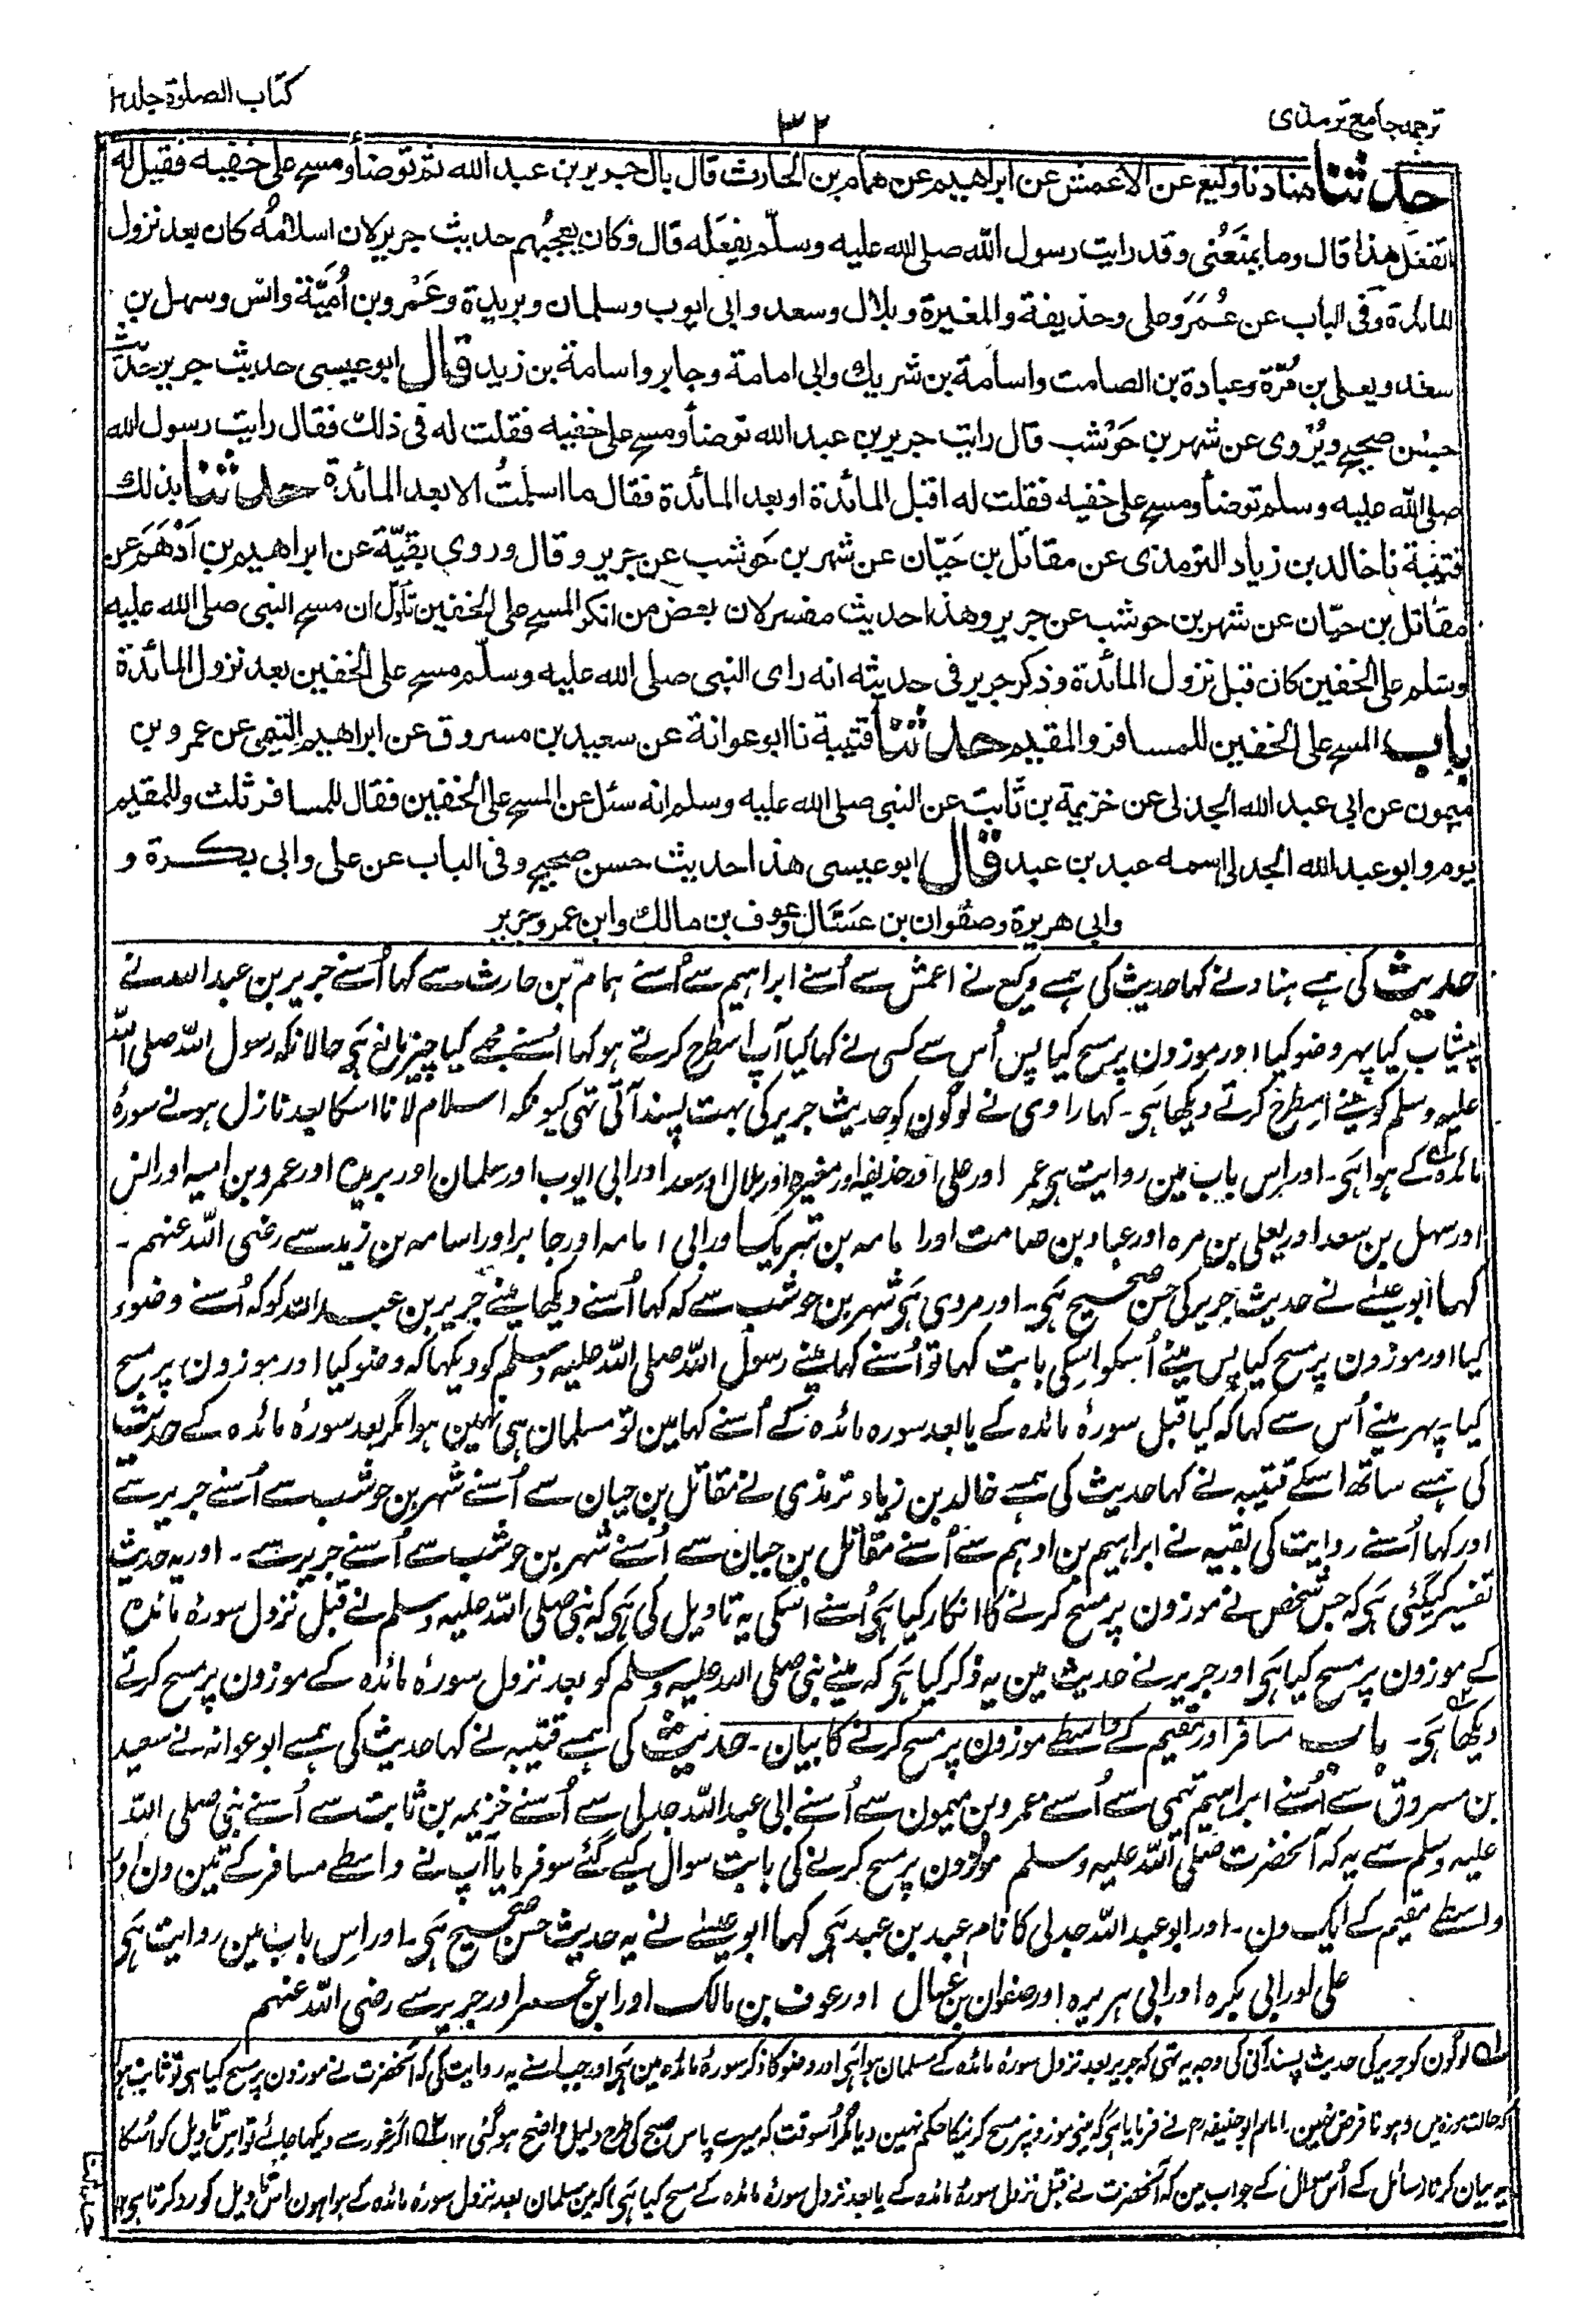 ترجمہ جامع ترمذی
۳۲
کتاب الصلوة جلد ۱
حدثنا هناد نا وكيع عن الاعمش عن ابراهيم عن همام بن الحارث قال بال جرير بن عبد الله ثم توضأ ومسح على خفيه فقيل له
اتفعل هذا قال وما يمنعنى وقد رايت رسول الله صلى الله عليه وسلم يفعله قال وكان يعجبهم حديث جرير لان اسلامه كان بعد نزول
المائدة وفى الباب عن عُمَرَ وعلى وحذيفة والمغيرة وبلال وسعد وابى ايوب وسلمان وبريدة وعَمْرو بن أُمَيَّة وانس وسهل بن
سعد ويعلى بن مُرّة وعبادة بن الصامت واسامة بن شريك وابى امامة وجابر واسامة بن زيد قال ابو عيسى حديث جرير حديث
حسن صحيح ويُرْوى عن شهر بن حَوْشب قال رايت جرير بن عبد الله توضأ ومسح على خفيه فقلت له فى ذلك فقال رايت رسول الله
صلى الله عليه وسلم توضأ ومسح على خفيه فقلت له اقبل المائدة او بعد المائدة فقال ما اسلمتُ الا بعد المائدة حدثنا بذلك
قتيبة نا خالد بن زياد الترمذى عن مقاتل بن حَيّان عن شهر بن حَوشب عن جرير وقال وروى بقيّة عن ابراهيم بن اَدْهَمَ عن
مقاتل بن حيّان عن شهر بن حوشب عن جرير وهذا حديث مفسر لان بعض من انكر المسح على الخفين تأول ان مسح النبى صلى الله عليه
وسلم على الخفين كان قبل نزول المائدة وذكر جرير فى حديثه انه راى النبى صلى الله عليه وسلم مسح على الخفين بعد نزول المائدة
باب المسح على الخفين للمسافر والمقيم حدثنا قتيبة نا ابو عوانة عن سعيد بن مسروق عن ابراهيم التيمى عن عمرو بن
ميمون عن ابى عبد الله الجدلى عن خزيمة بن ثابت عن النبى صلى الله عليه وسلم انه سئل عن المسح على الخفين فقال للمسافر ثلث وللمقيم
يوم وابو عبد الله الجدلى اسمه عبد بن عبد قال ابو عيسى هذا حديث حسن صحيح وفى الباب عن على وابى بكرة و
وابى هريرة وصفوان بن عسّال وعوف بن مالك وابن عمر وجرير
حدیث کی ہمسے ہناد نے کہا حدیث کی ہمسے وکیع نے اعمش سے اُسنے ابراہیم سے اُسنے ہمام بن حارث سے کہا اُسنے جریر بن عبد اللہ نے
پیشاب کیا پہر وضو کیا اور موزون پر مسح کیا پس اُس سے کسی نے کہا کیا آپ اسطرح کرتے ہو کہا اُسنے مجھے کیا چیز مانع ہَی حالانکہ رسول اللہ صلی اللہ
علیہ وسلم کو مینے اسطرح کرتے دیکھا ہَی۔ کہا راوی نے لوگون کو حدیث جریر کی بہت پسند آتی تہی کیونکہ اسلام لانا اسکا بعد نازل ہونے سورۂ
مائدہ کے ہوا ہَی۔ اور اِس باب مین روایت ہی عمر اور علی اور حذیفہ اور مغیرہ اور بلال اور سعد اور ابی ایوب اور سلمان اور بریدہ اور عمرو بن امیہ اور انس
اور سہل بن سعد اور یعلی بن مرہ اور عباد بن صامت اور ا مامہ بن شریک اور ابی امامہ اور جابر اور اسامہ بن زید سے رضی اللہ عنہم۔
کہا ابو عیسٰے نے حدیث جریر کی حسن صحیح ہَی۔ اور مروی ہَی شہر بن حوشب سے کہ کہا اُسنے دیکھا مینے جریر بن عبد اللہ کو کہ اُسنے وضوء
کیا اور موزون پر مسح کیا پس مینے اُسکو اِسکی بابت کہا تو اُسنے کہا مینے رسول اللہ صلی اللہ علیہ وسلم کو دیکہا کہ وضو کیا اور موزون پر مسح
کیا۔ پہر مینے اُس سے کہا کہ کیا قبل سورۂ مائدہ کے یا بعد سورہ مائدہ کے اُسنے کہا مین تو مسلمان ہی نہین ہوا مگر بعد سورۂ مائدہ کے حدیث
کی ہمسے ساتھ اسکے قتیبہ نے کہا حدیث کی ہمسے خالد بن زیاد ترمذی نے مقاتل بن حیان سے اُسنے شہر بن حوشب سے اُسنے جریر سے
اور کہا اُسنے روایت کی بقیہ نے ابراہیم بن ادہم سے اُسنے مقاتل بن حیان سے اُسنے شہر بن حوشب سے اُسنے جریر سے۔ اور یہ حدیث
تفسیر کیگئی ہَی کہ جس شخص نے موزون پر مسح کرنے کا انکار کیا ہَی اُسنے اسکی یہ تاویل کی ہَی کہ نبی صلی اللہ علیہ وسلم نے قبل نزول سورۂ مائدہ
کے موزون پر مسح کیا ہَی اور جریر نے حدیث مین یہ ذکر کیا ہَی کہ مینے نبی صلی اللہ علیہ وسلم کو بعد نزول سورۂ مائدہ کے موزون پر مسح کرتے
دیکھا ہَی۔ باب مسافر اور مقیم کے واسطے موزون پر مسح کرنے کا بیان۔ حدیث کی ہمسے قتیبہ نے کہا حدیث کی ہمسے ابو عوانہ نے سعید
بن مسروق سے اُسنے ابراہیم تیمی سے اُسے عمرو بن میمون سے اُسنے ابی عبد اللہ جدلی سے اُسنے خزیمہ بن ثابت سے اُسنے نبی صلی اللہ
علیہ وسلم سے یہ کہ آنحضرت صلی اللہ علیہ وسلم موزون پر مسح کرنے کی بابت سوال کیے گئے سو فرمایا آپ نے واسطے مسافر کے تین دن اور
واسطے مقیم کے ایک دن۔ اور ابو عبد اللہ جدلی کا نام عبد بن عبد ہَی کہا ابو عیسٰے نے یہ حدیث حسن صحیح ہَی۔ اور اِس باب مین روایت ہَی
علی اور ابی بکرہ اور ابی ہریرہ اور صفوان بن عسال اور عوف بن مالک اور ابن عمر اور جریر سے رضی اللہ عنہم
۱؎ لوگون کو جریر کی حدیث پسند آنی کی وجہ یہ تہی کہ جریر بعد نزول سورۂ مائدہ کے مسلمان ہوا ہَی اور وضو کا ذکر سورۂ مائدہ مین ہَی اور جب اسنے یہ روایت کی کہ آنحضرت نے موزون پر مسح کیا ہی تو ثابت ہوا
کہ حالت موزہ مین دہونا فرض نہین۔ امام ابو حنیفہ رح نے فرمایا ہَی کہ مینی موزونپر مسح کرنیکا حکم نہین دیا مگر اُسوقت کہ میرے پاس صبح کی طرح دلیل واضح ہوگئی ۱۲ ۲؎ اگر غور سے دیکہا جائے تو اس تاویل کو اُسکا
یہ بیان کرنا سائل کے اُس سوال کے جواب مین کہ آنحضرت نے قبل نزول سورۂ مائدہ کے یا بعد نزول سورۂ مائدہ کے مسح کیا ہَی کہ مین مسلمان بعد نزول سورۂ مائدہ کے ہوا ہون اس تاویل کو رد کرتا ہَی ۱۲